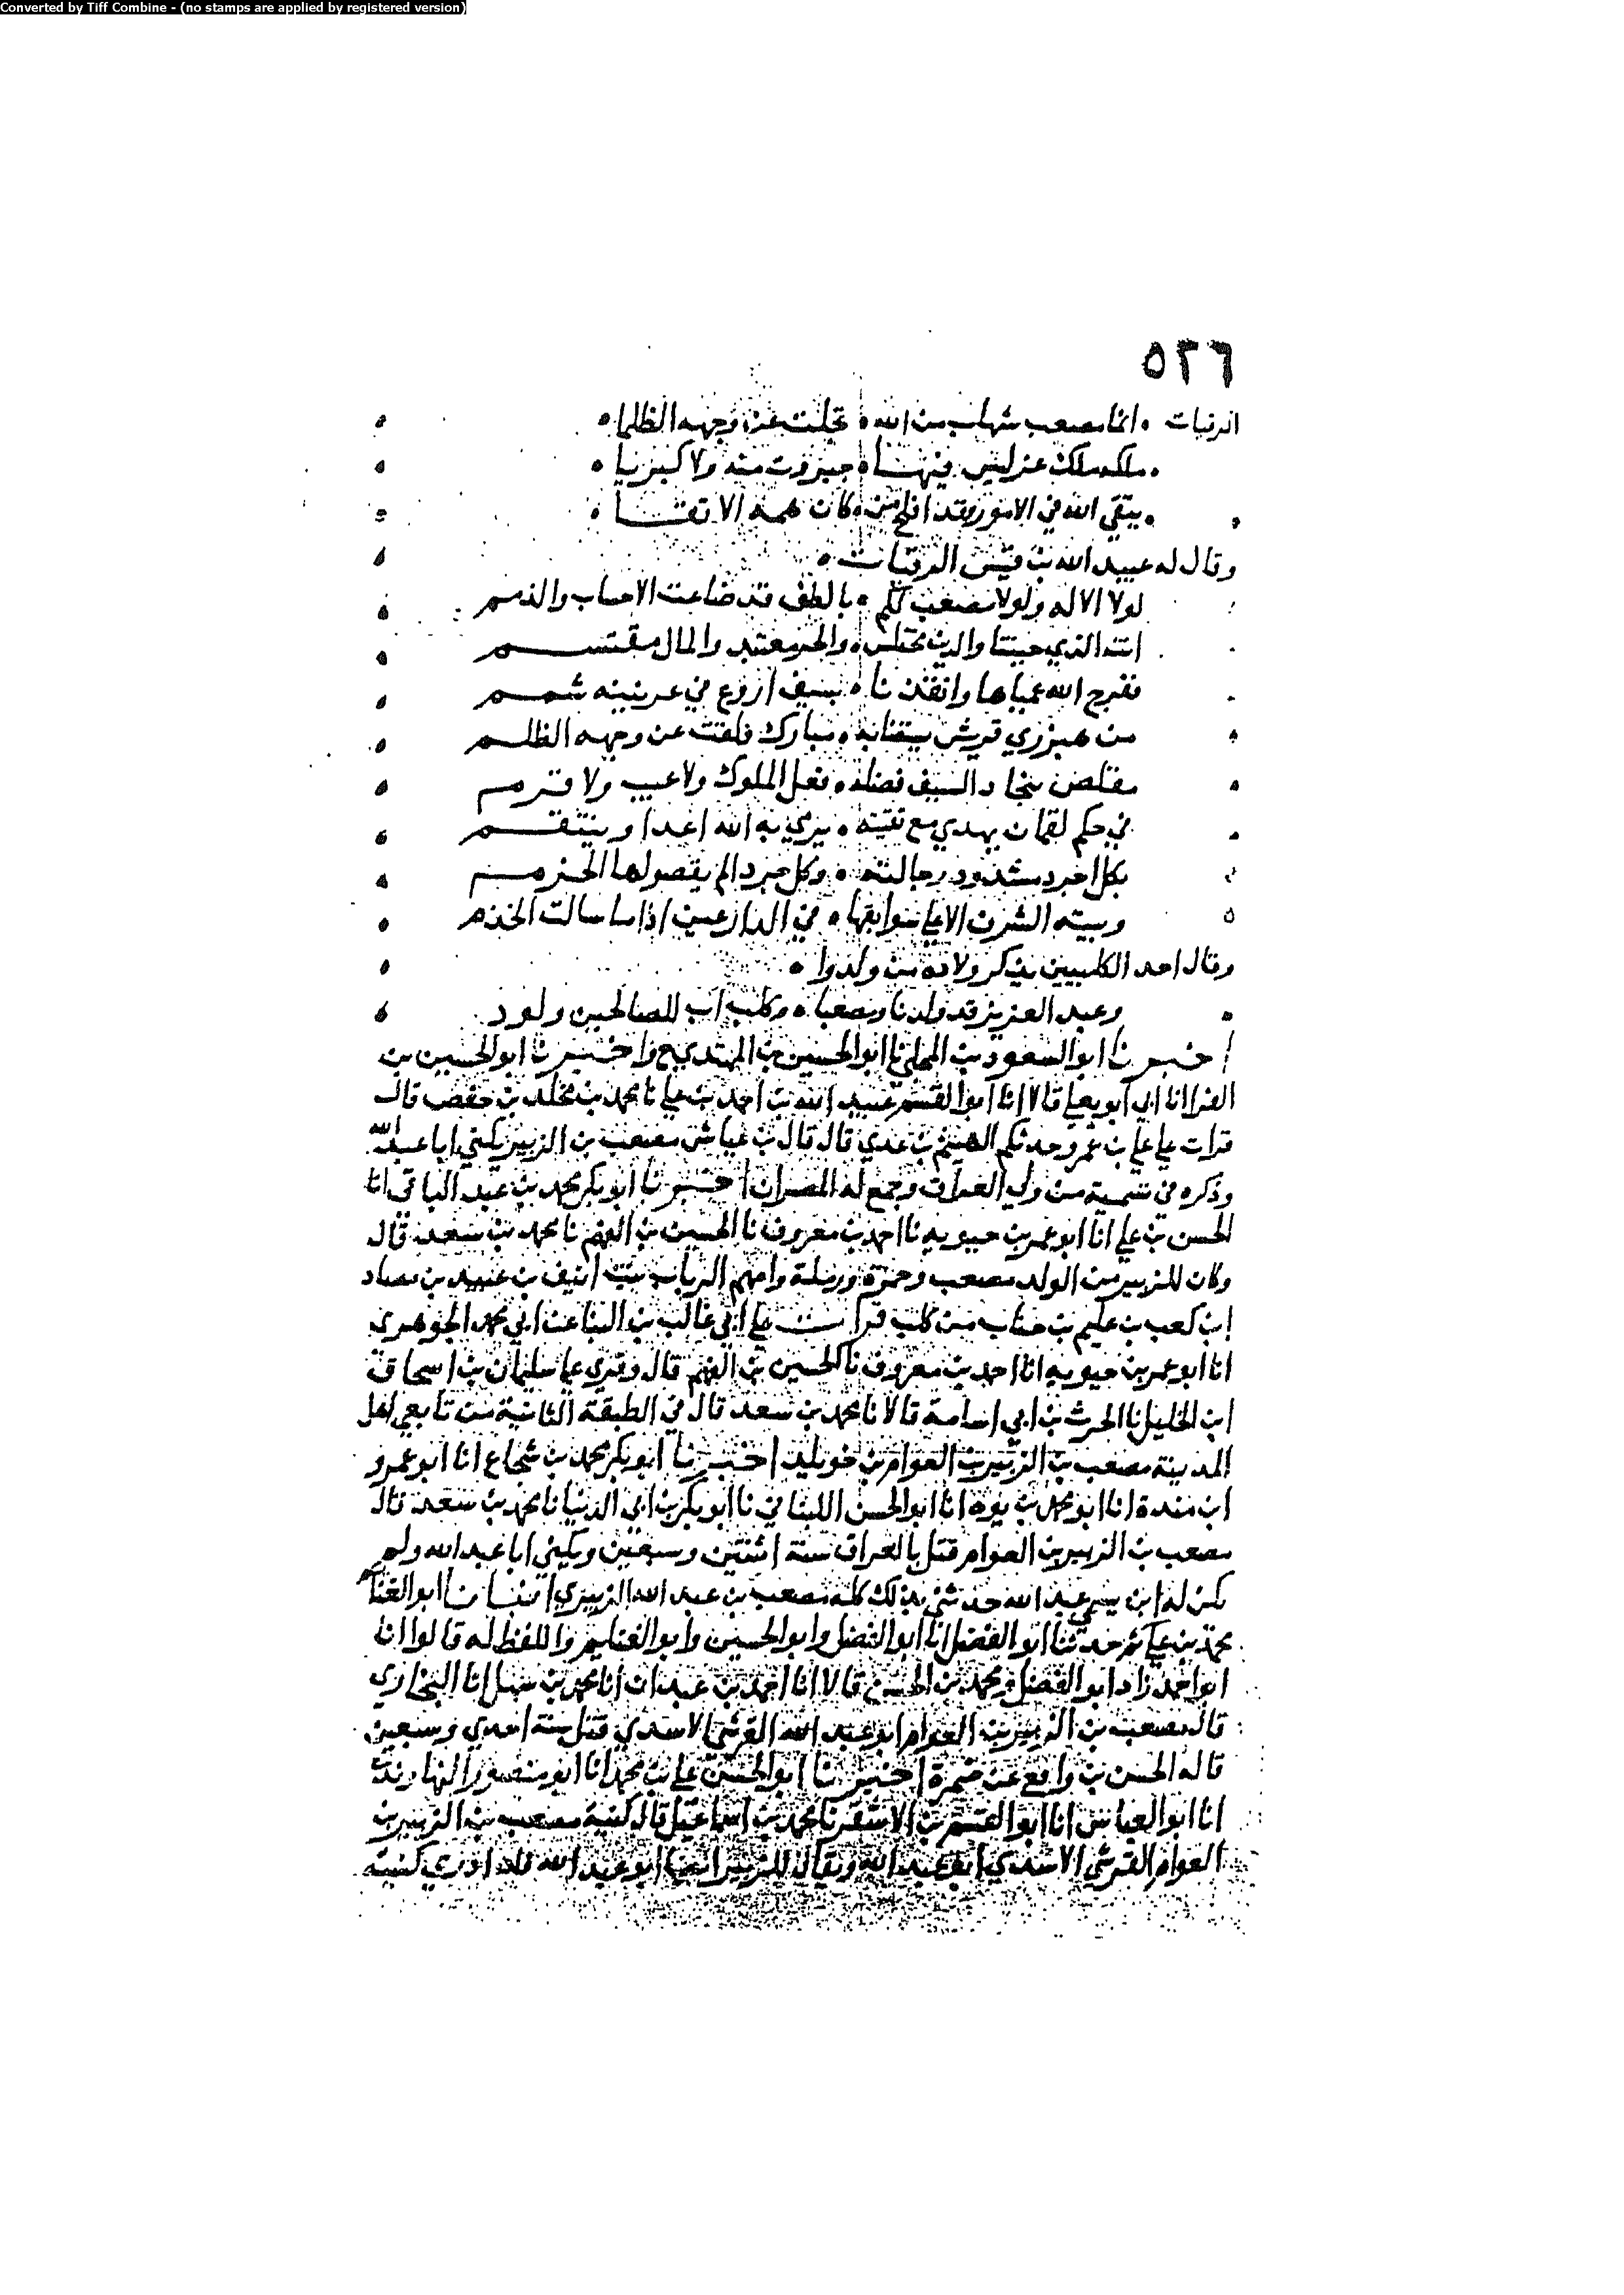 Converted by Tiff Combine - (no stamps are applied by registered version)
٥٢٦
الرقيات ه انما مصعب شهاب من الله ه تجلت عن وجهه الظلماه
ملكه ملك عز ليس فيها ه جبروت منه ولا كبريا ه
يتقي الله في الامور وقد افلح من ه كان همه الاتقا ه
وقال له عبيد الله بن قيس الرقيات ه
لولا الاله ولولا مصعب لكم ه بالطف قد ضاعت الاحساب والذمم
انت الذي جيتنا والدين مختلس ه والحر معتبد والمال مقتسم
ففرج الله عمياها وانقذنا ه بسيف اروع في عرنينه شمم
من هبرزي قريش يستضا به ه مبارك فلقت عن وجهه الظلم
مقلص بنجاد السيف فضله ه فعل الملوك ولا عيب ولا قزم
في حكم لقمان يهدي مع نقيبته ه يرمي به الله اعدا وينتقم
بكل اجرد مشدود رحالته ه وكل جردا لم يقصولها الحزم
وبيته الشرف الاعلى سوابقها ه في الدارعين اذا ما سالت الخذم
وقال احد الكلبيين يذكر ولادة من ولدوا ه
وعبد العزيز قد ولدنا ومصعبا ه وكلب اب للصالحين ولود
اخبرنا ابو السعود بن المجلي نا ابو الحسين بن المهتدي ح واخبرنا ابو الحسين بن
الفرا انا ابي ابو يعلى قالا انا ابو القسم عبيد الله بن احمد بن علي نا محمد بن مخلد بن حفص قال
قرات على علي بن عمرو حدثكم الهيثم بن عدي قال قال بن عياش مصعب بن الزبير يكني ابا عبد الله
وذكره في تسمية من ولي العراق وجمع له المصران اخبرنا ابو بكر محمد بن عبد الباقي انا
الحسن بن علي انا ابو عمر بن حيويه نا احمد بن معروف نا الحسين بن الفهم نا محمد بن سعد قال
وكان للزبير من الولد مصعب وحمزة ورملة وامهم الرباب بنت انيف بن عبيد بن مصاد
ابن كعب بن عليم بن جناب من كلب قرات على ابي غالب بن البنا عن ابي محمد الجوهري
انا ابو عمر بن حيويه انا احمد بن معروف نا الحسين بن الفهم قال وقري على سليمان بن اسحاق
ابن الخليل نا الحرث بن ابي اسامة قالا نا محمد بن سعد قال في الطبقة الثانية من تابعي اهل
المدينة مصعب بن الزبير بن العوام بن خويلد اخبرنا ابو بكر محمد بن شجاع انا ابو عمرو
ابن مندة انا ابو محمد بن يوه انا ابو الحسن اللبناني نا ابو بكر بن ابي الدنيا نا محمد بن سعد قال
مصعب بن الزبير بن العوام قتل بالعراق سنة اثنتين وسبعين ويكني ابا عبد الله ولم
يكن له ابن يسمى عبد الله حدثني بذلك كله مصعب بن عبد الله الزبيري انبانا ابو الغنائم
محمد بن علي ثم حدثنا ابو الفضل انا ابو الفضل وابو الحسين وابو الغنايم واللفظ له قالوا انا
ابو احمد زاد ابو الفضل ومحمد بن الحسن قالا انا احمد بن عبدان انا محمد بن سهل انا البخاري
قال مصعب بن الزبير بن العوام ابو عبد الله القرشي الاسدي قتل سنة احدي وسبعين
قاله الحسن بن واقع عن ضمرة اخبرنا ابو الحسن علي بن محمد انا ابو منصور النهاوندي
انا ابو العباس انا ابو القسم بن الاشقر نا محمد بن اسماعيل قال كنية مصعب بن الزبير بن
العوام القرشي الاسدي ابو عبد الله ويقال للزبير ايضا ابو عبد الله فلا ادري كنية